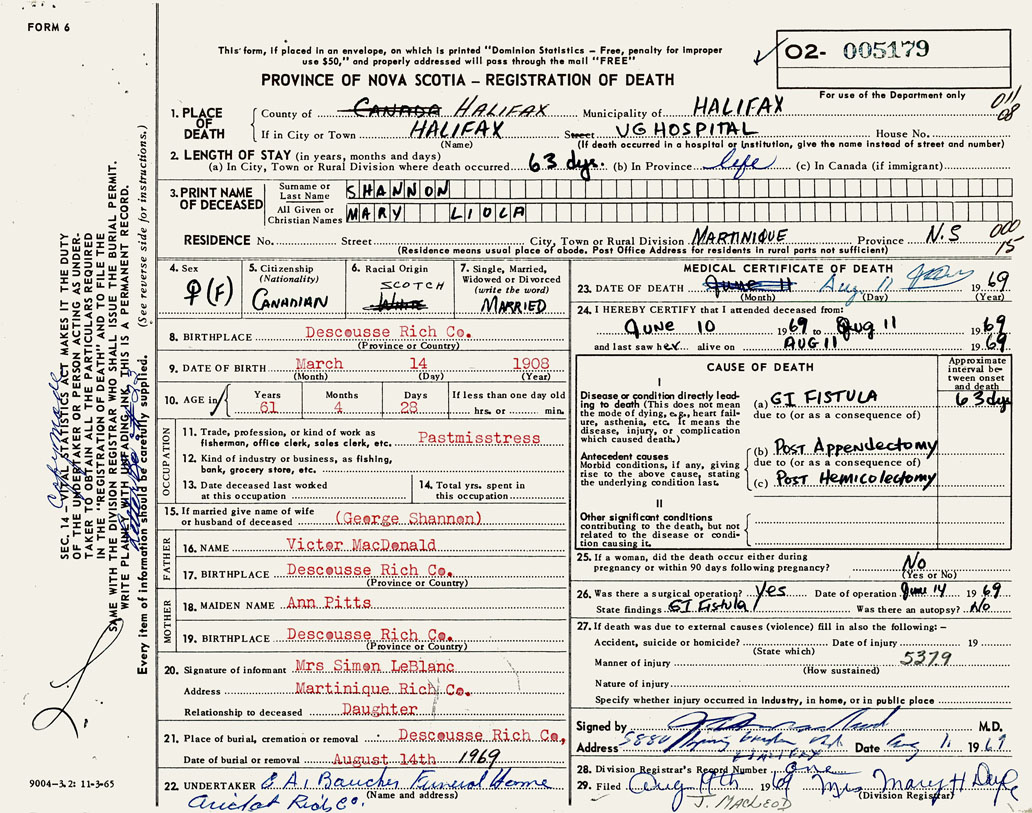 FORM 6
This form, if placed in an envelope, on which is printed "Dominion Statistics – Free, penalty for improper
use $50," and properly addressed will pass through the mail "FREE"
O2- 005179
PROVINCE OF NOVA SCOTIA – REGISTRATION OF DEATH
For use of the Department only
011
08
1. PLACE OF DEATH
County of CANADA HALIFAX Municipality of HALIFAX
If in City or Town HALIFAX Street VG HOSPITAL House No.
(Name) (If death occurred in a hospital or institution, give the name instead of street and number)
2. LENGTH OF STAY (in years, months and days)
(a) In City, Town or Rural Division where death occurred 63 dys. (b) In Province life (c) In Canada (if immigrant)
3. PRINT NAME OF DECEASED
Surname or Last Name SHANNON
All Given or Christian Names MARY LIOLA
RESIDENCE No. Street City, Town or Rural Division MARTINIQUE Province N.S
(Residence means usual place of abode. Post Office Address for residents in rural parts not sufficient)
000
15
4. Sex
♀(F)
5. Citizenship
(Nationality)
CANADIAN
6. Racial Origin
SCOTCH
White
7. Single, Married,
Widowed or Divorced
(write the word)
MARRIED
8. BIRTHPLACE Descousse Rich Co.
(Province or Country)
9. DATE OF BIRTH March 14 1908
(Month) (Day) (Year)
10. AGE in Years Months Days If less than one day old
61 4 28 hrs. or min.
OCCUPATION
11. Trade, profession, or kind of work as
fisherman, office clerk, sales clerk, etc. Pastmisstress
12. Kind of industry or business, as fishing,
bank, grocery store, etc.
13. Date deceased last worked
at this occupation
14. Total yrs. spent in
this occupation
15. If married give name of wife
or husband of deceased (George Shannon)
FATHER
16. NAME Victor MacDonald
17. BIRTHPLACE Descousse Rich Co.
(Province or Country)
MOTHER
18. MAIDEN NAME Ann Pitts
19. BIRTHPLACE Descousse Rich Co.
(Province or Country)
20. Signature of informant Mrs Simon LeBlanc
Address Martinique Rich Co.
Relationship to deceased Daughter
21. Place of burial, cremation or removal Descousse Rich Co,
Date of burial or removal August 14th 1969
22. UNDERTAKER E A. Boucher Funeral Home
(Name and address)
Arichat Rich Co.
MEDICAL CERTIFICATE OF DEATH
23. DATE OF DEATH June 11 Aug 11 1969
(Month) (Day) (Year)
24. I HEREBY CERTIFY that I attended deceased from:
June 10 1969 to Aug 11 1969
and last saw her alive on AUG 11 1969
CAUSE OF DEATH
Approximate
interval be-
tween onset
and death
I
Disease or condition directly lead-
ing to death (This does not mean
the mode of dying, e.g., heart fail-
ure, asthenia, etc. It means the
disease, injury, or complication
which caused death.)
(a) GI FISTULA 63 dys
due to (or as a consequence of)
Antecedent causes
Morbid conditions, if any, giving
rise to the above cause, stating
the underlying condition last.
(b) POST APPENDECTOMY
due to (or as a consequence of)
(c) POST HEMICOLECTOMY
II
Other significant conditions
contributing to the death, but not
related to the disease or condi-
tion causing it.
25. If a woman, did the death occur either during
pregnancy or within 90 days following pregnancy? No
(Yes or No)
26. Was there a surgical operation? Yes Date of operation June 14 1969
State findings GI Fistula Was there an autopsy? No
27. If death was due to external causes (violence) fill in also the following: –
Accident, suicide or homicide? Date of injury 19
(State which)
Manner of injury 5379
(How sustained)
Nature of injury
Specify whether injury occurred in Industry, in home, or in public place
Signed by M.D.
Address 5880 Spring Garden Rd Date Aug 11 1969
HALIFAX
28. Division Registrar's Record Number One
29. Filed Aug 19th 1969 Mrs Mary H
(Division Registrar)
J. MACLEOD
SEC. 14 – VITAL STATISTICS ACT MAKES IT THE DUTY
OF THE UNDERTAKER OR PERSON ACTING AS UNDER-
TAKER TO OBTAIN ALL THE PARTICULARS REQUIRED
IN THE "REGISTRATION OF DEATH" AND TO FILE THE
SAME WITH THE DIVISION REGISTRAR WHO SHALL ISSUE THE BURIAL PERMIT.
WRITE PLAINLY WITH UNFADING INK. THIS IS A PERMANENT RECORD.
Every item of information should be carefully supplied. (See reverse side for instructions.)
9004-3.2: 11-3-65